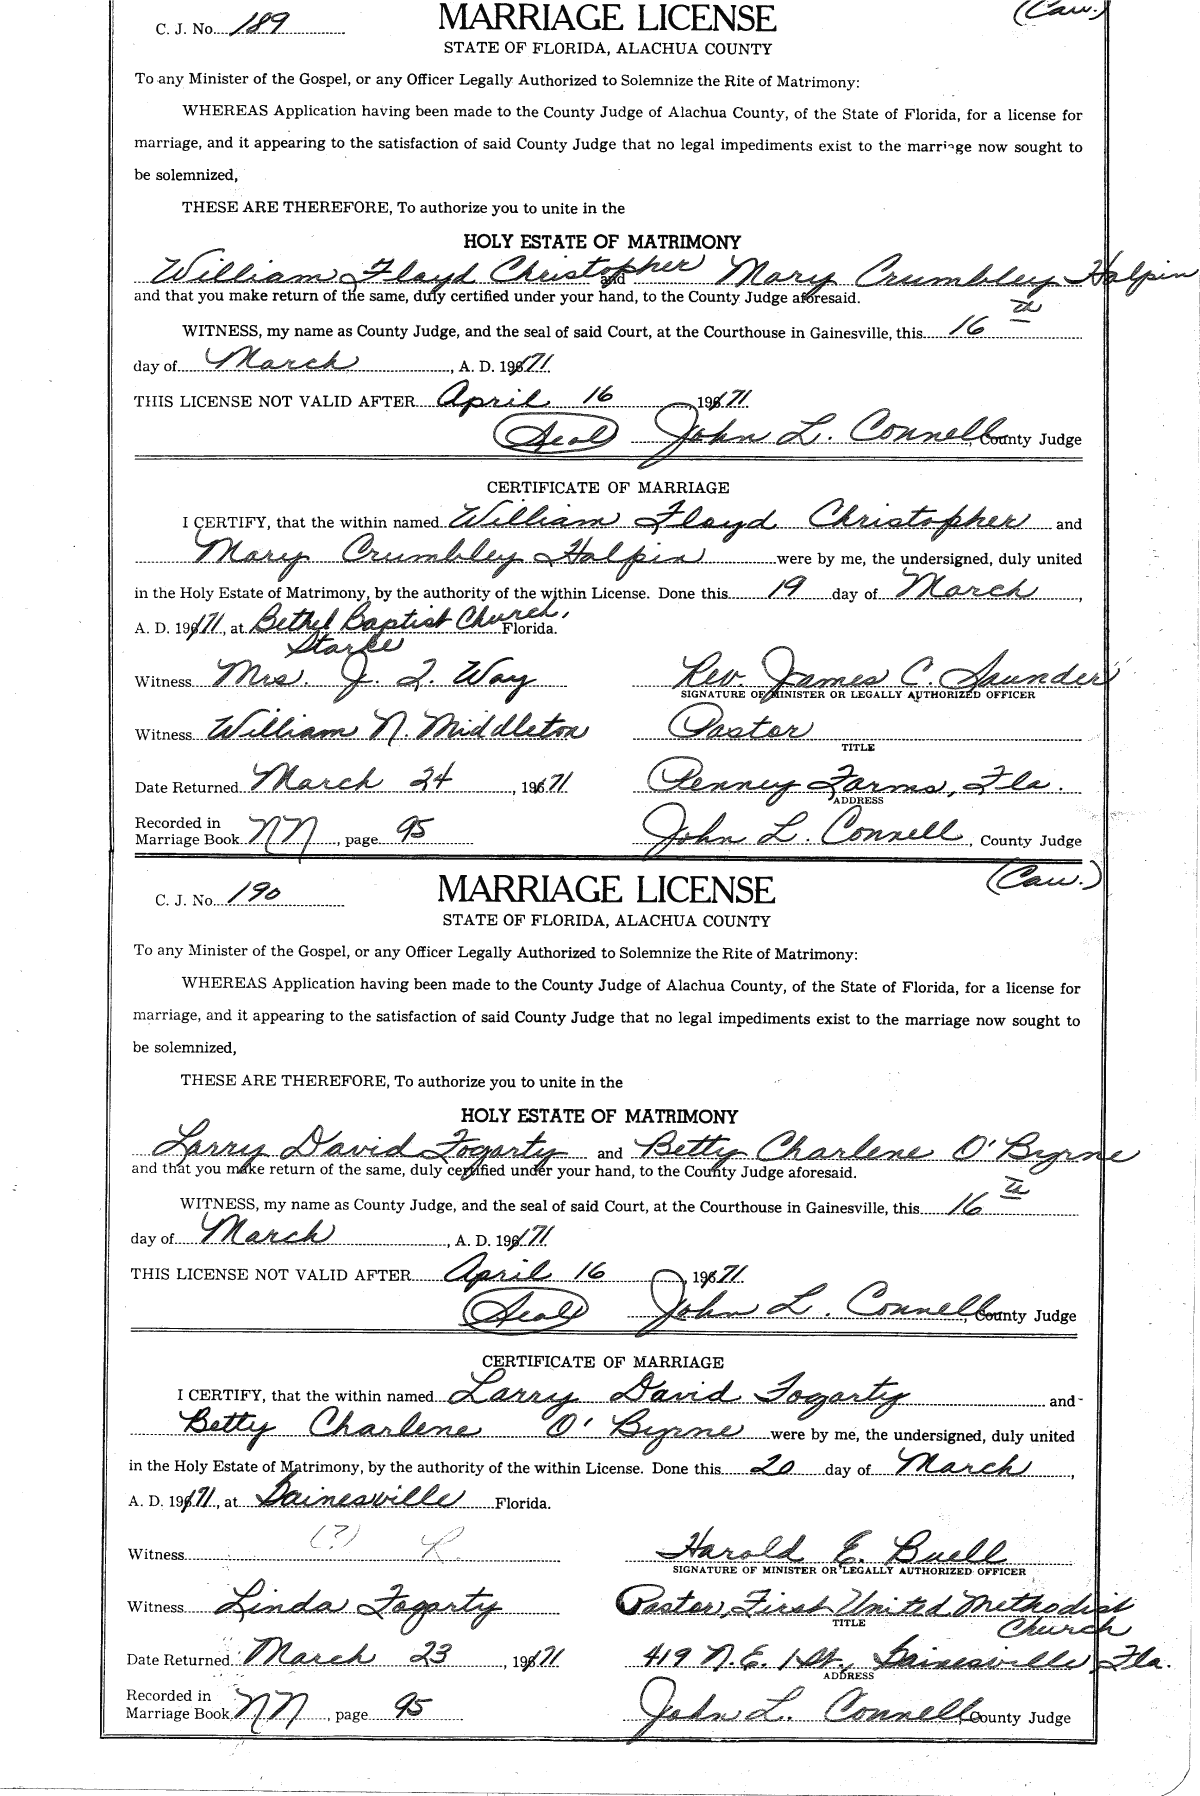 C. J. No. 189 MARRIAGE LICENSE (Cau.)
STATE OF FLORIDA, ALACHUA COUNTY
To any Minister of the Gospel, or any Officer Legally Authorized to Solemnize the Rite of Matrimony:
WHEREAS Application having been made to the County Judge of Alachua County, of the State of Florida, for a license for
marriage, and it appearing to the satisfaction of said County Judge that no legal impediments exist to the marriage now sought to
be solemnized,
THESE ARE THEREFORE, To authorize you to unite in the
HOLY ESTATE OF MATRIMONY
William Floyd Christopher and Mary Crumbley Halpin
and that you make return of the same, duly certified under your hand, to the County Judge aforesaid.
WITNESS, my name as County Judge, and the seal of said Court, at the Courthouse in Gainesville, this 16th
day of March, A. D. 1971.
THIS LICENSE NOT VALID AFTER April 16, 1971.
(Seal) John L. Connell, County Judge
CERTIFICATE OF MARRIAGE
I CERTIFY, that the within named William Floyd Christopher and
Mary Crumbley Halpin were by me, the undersigned, duly united
in the Holy Estate of Matrimony, by the authority of the within License. Done this 19 day of March,
A. D. 1971, at Bethel Baptist Church, Florida.
Starke
Witness Mrs. J. I. Way Rev. James C. Saunders
SIGNATURE OF MINISTER OR LEGALLY AUTHORIZED OFFICER
Witness William N. Middleton Pastor
TITLE
Date Returned March 24, 1971 Penney Farms, Fla.
ADDRESS
Recorded in
Marriage Book NN, page 95 John L. Connell, County Judge
C. J. No. 190 MARRIAGE LICENSE (Cau.)
STATE OF FLORIDA, ALACHUA COUNTY
To any Minister of the Gospel, or any Officer Legally Authorized to Solemnize the Rite of Matrimony:
WHEREAS Application having been made to the County Judge of Alachua County, of the State of Florida, for a license for
marriage, and it appearing to the satisfaction of said County Judge that no legal impediments exist to the marriage now sought to
be solemnized,
THESE ARE THEREFORE, To authorize you to unite in the
HOLY ESTATE OF MATRIMONY
Larry David Fogarty and Betty Charlene O'Byrne
and that you make return of the same, duly certified under your hand, to the County Judge aforesaid.
WITNESS, my name as County Judge, and the seal of said Court, at the Courthouse in Gainesville, this 16th
day of March, A. D. 1971
THIS LICENSE NOT VALID AFTER April 16, 1971.
(Seal) John L. Connell, County Judge
CERTIFICATE OF MARRIAGE
I CERTIFY, that the within named Larry David Fogarty and
Betty Charlene O'Byrne were by me, the undersigned, duly united
in the Holy Estate of Matrimony, by the authority of the within License. Done this 20 day of March,
A. D. 1971, at Gainesville Florida.
Witness (?) R. Harold E. Buell
SIGNATURE OF MINISTER OR LEGALLY AUTHORIZED OFFICER
Witness Linda Fogarty Pastor, First United Methodist
TITLE Church
Date Returned March 23, 1971 419 N.E. 1 St., Gainesville, Fla.
ADDRESS
Recorded in
Marriage Book NN, page 95 John L. Connell, County Judge